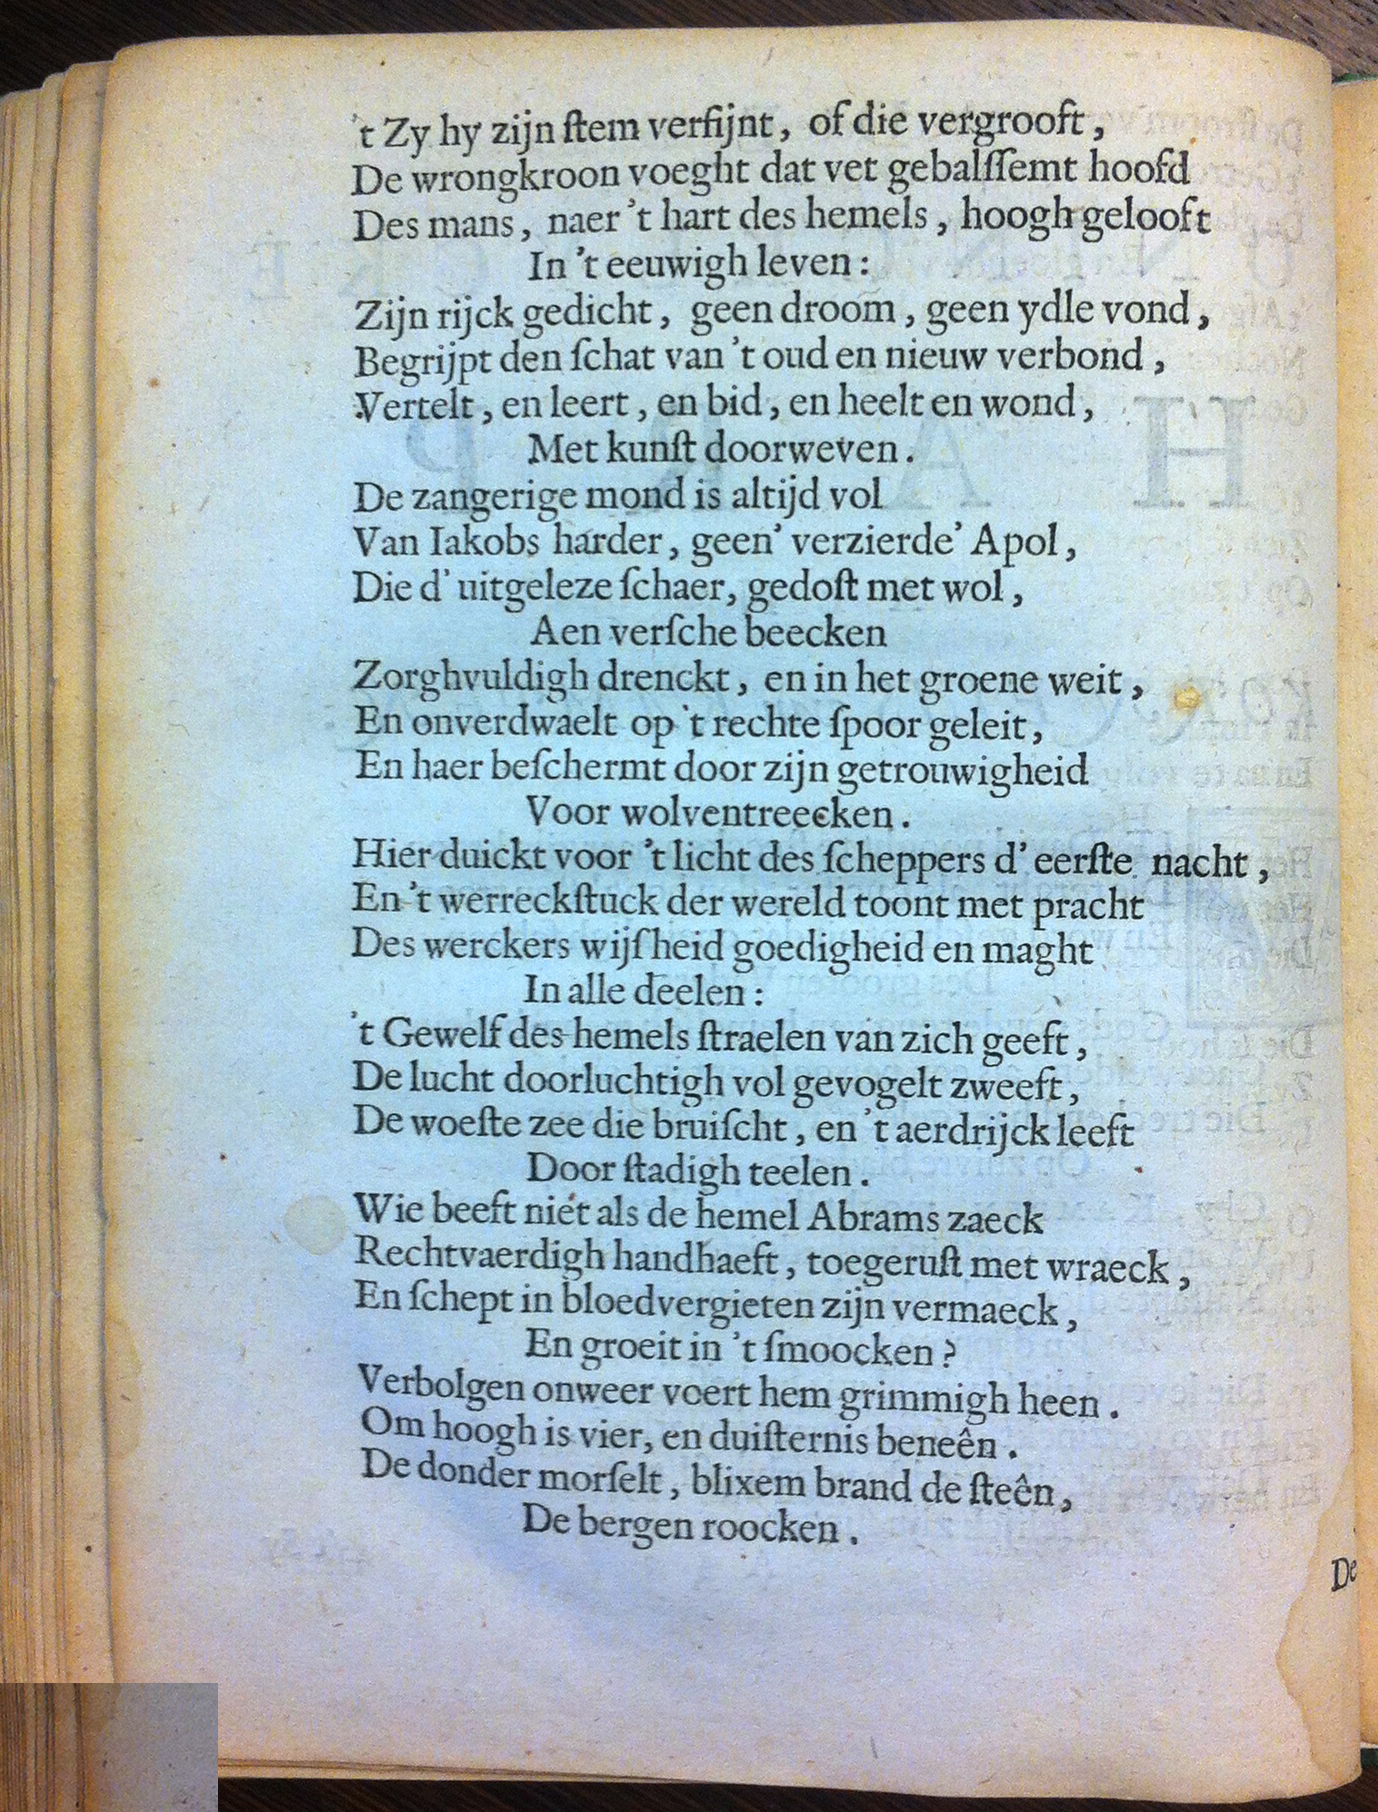 't Zy hy zijn ſtem verfijnt, of die vergrooft,
De wrongkroon voeght dat vet gebalſſemt hoofd
Des mans, naer 't hart des hemels, hoogh gelooft
In 't eeuwigh leven:
Zijn rijck gedicht, geen droom, geen ydle vond,
Begrijpt den ſchat van 't oud en nieuw verbond,
Vertelt, en leert, en bid, en heelt en wond,
Met kunſt doorweven.
De zangerige mond is altijd vol
Van Iakobs harder, geen' verzierde' Apol,
Die d' uitgeleze ſchaer, gedoſt met wol,
Aen verſche beecken
Zorghvuldigh drenckt, en in het groene weit,
En onverdwaelt op 't rechte ſpoor geleit,
En haer beſchermt door zijn getrouwigheid
Voor wolventreecken.
Hier duickt voor 't licht des ſcheppers d' eerſte nacht,
En 't werreckſtuck der wereld toont met pracht
Des werckers wijſheid goedigheid en maght
In alle deelen:
't Gewelf des hemels ſtraelen van zich geeft,
De lucht doorluchtigh vol gevogelt zweeft,
De woeſte zee die bruiſcht, en 't aerdrijck leeft
Door ſtadigh teelen.
Wie beeft niet als de hemel Abrams zaeck
Rechtvaerdigh handhaeft, toegeruſt met wraeck,
En ſchept in bloedvergieten zijn vermaeck,
En groeit in 't ſmoocken?
Verbolgen onweer voert hem grimmigh heen.
Om hoogh is vier, en duiſternis beneên.
De donder morſelt, blixem brand de ſteên,
De bergen roocken.
De